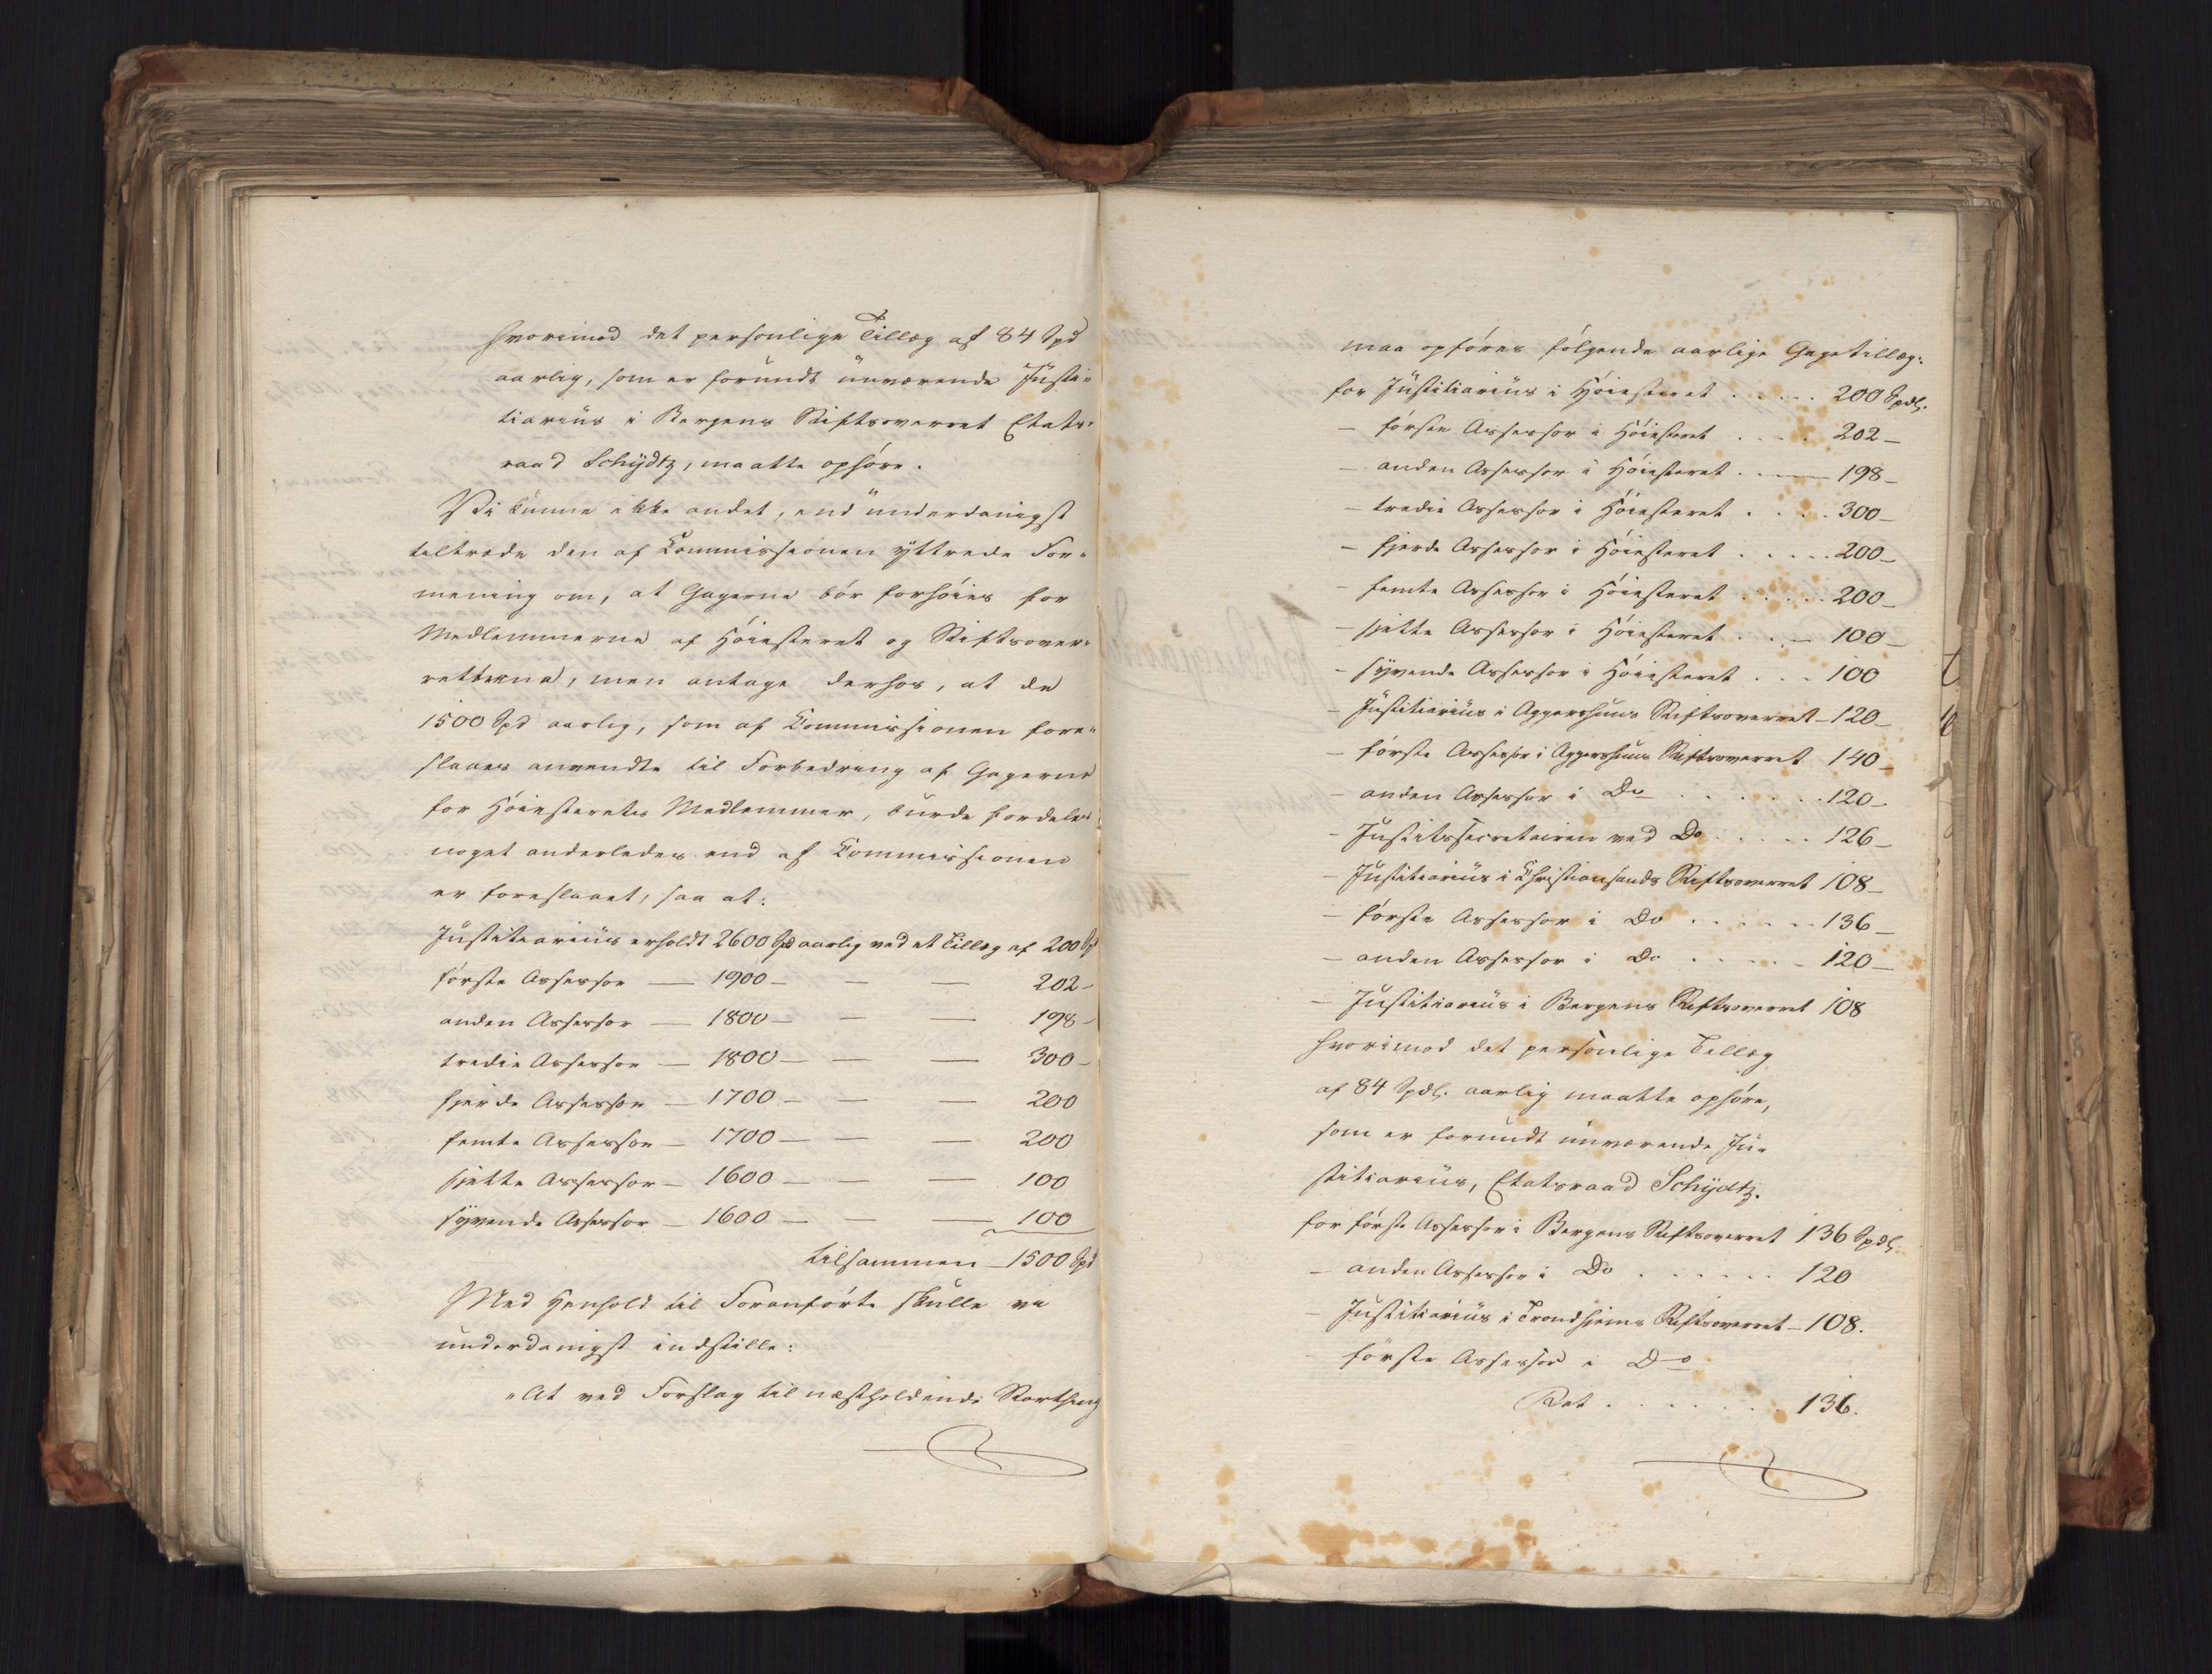 hvorimod det personlige Tillæg af 84 Spd
aarlig, som er forundt nuværende Justi-
tiarius i Bergens Stiftsoverret Etats-
raad Schydtz, maatte ophøre.
Vi kunne ikke andet, end underdanigst
tiltræde den af Commissionen yttrede For-
mening om, at Gagerne bør forhøies for
Medlemmerne af Høiesteret og Stiftsover-
retterne, men antage derhos, at de
1500 Spd aarlig, som af Commissionen fore-
slaaes anvendte til Forbedring af Gagerne
for Høiesterets Medlemmer, burde fordeles
noget anderledes end af Commissionen
er foreslaaet, saa at:
Justitiarius erholdt 2600 Spd aarlig ved et Tillæg af 200 Spd
første Assessor — 1900 — — — 202 -
anden Assessor — 1800 — — — 198 -
tredie Assessor — 1800 — — — 300 -
fjerde Assessor — 1700 — — — 200
femte Assessor — 1700 — — — 200
sjette Assessor — 1600 — — — 100
syvende Assessor — 1600 — — — 100
tilsammen — 1500 Spd
Med Henhold til Foranførte skulle vi
underdanigst indstille:
"At ved Forslag til næstholdende Storthing
maa opføres følgende aarlige Gagetillæg:
for Justitiarius i Høiesteret . . . . . 200 Spdl.
— første Assessor i Høiesteret . . . . 202 —
— anden Assessor i Høiesteret . . — 198 —
— tredie Assessor i Høiesteret . . . . 300 —
— fjerde Assessor i Høiesteret . . . . . 200 —
— femte Assessor i Høiesteret . . . . . 200 —
— sjette Assessor i Høiesteret . . . — 100 —
— syvende Assessor i Høiesteret . . . 100
— Justitiarius i Aggershuus Stiftsoverret — 120 —
— første Assessor i Aggershuus Stiftsoverret 140 —
— anden Assessor i Do . . . . . . 120 —
— Justitssecretairen ved Do . . . . . 126 —
— Justitiarius i Christiansands Stiftsoverret 108 —
— første Assessor i Do . . . . . . 136 —
— anden Assessor i Do . . . . . 120 —
— Justitiarius i Bergens Stiftsoverret 108
hvorimod det personlige Tillæg
af 84 Spdl. aarlig maatte ophøre,
som er forundt nuværende Ju-
stitiarius, Etatsraad Schydtz.
for første Assessor i Bergens Stiftsoverret 136 Spdl.
— anden Assessor i Do . . . . . . 120
— Justitiarius i Trondhjems Stiftsoverret — 108.
— første Assessor i Do
Ret . . . . . . . 136.